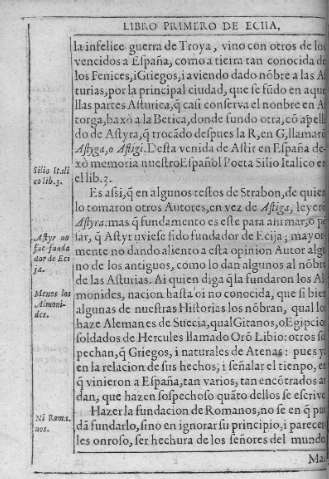 LIBRO PRIMERO DE ECIIA,
la infelice guerra de Troya, vino con otros de los
vencidos a España, como a tierra tan conocida de
los Fenices, i Griegos, i aviendo dado nõbre a las As
turias, por la principal ciudad, que se fũdo en aque
llas partes Asturica, q̃ casi conserva el nonbre en A
torga, baxò a la Betica, donde fundo otra, cõ apelli
do de Astyra, q̃ trocãdo despues la R, en G, llamarõ
Astyga, o Astigi. Desta venida de Astir en España de
xò memoria nuestro Español Poeta Silio Italico en
el lib. 3.
Silio Itali
co lib. 3.
Es assi, q̃ en algunos testos de Strabon, de quien
lo tomaron otros Autores, en vez de Astiga, leyerõ
Astyra. mas q̃ fundamento es este para animar, o pẽ
sar, q̃ Astyr uviese sido fundador de Ecija; mayor
mente no dando aliento a esta opinion Autor algu
no de los antiguos, como lo dan algunos al nõbre
de las Asturias. Ai quien diga q̃ la fundaron los Al
monides, nacion hasta oi no conocida, que si bien
algunas de nuestras Historias los nõbran, qual los
haze Alemanes de Suecia, qual Gitanos, o Egipcios
soldados de Hercules llamado Orõ Libio: otros so
pechan, q̃ Griegos, i naturales de Atenas: pues ya
en la relacion de sus hechos, i señalar el tienpo, en
q̃ vinieron a España, tan varios, tan encõtrados an
dan, que hazen sospechoso quãto dellos se escrive
Astyr no
fue funda
dor de Eci
ja.
Menos los
Almoni-
des.
Hazer la fundacion de Romanos, no se en q̃ pue
dã fundarlo, sino en ignorar su principio, i parecer
les onroso, ser hechura de los señores del mundo
Ni Roma-
nos.
Mas